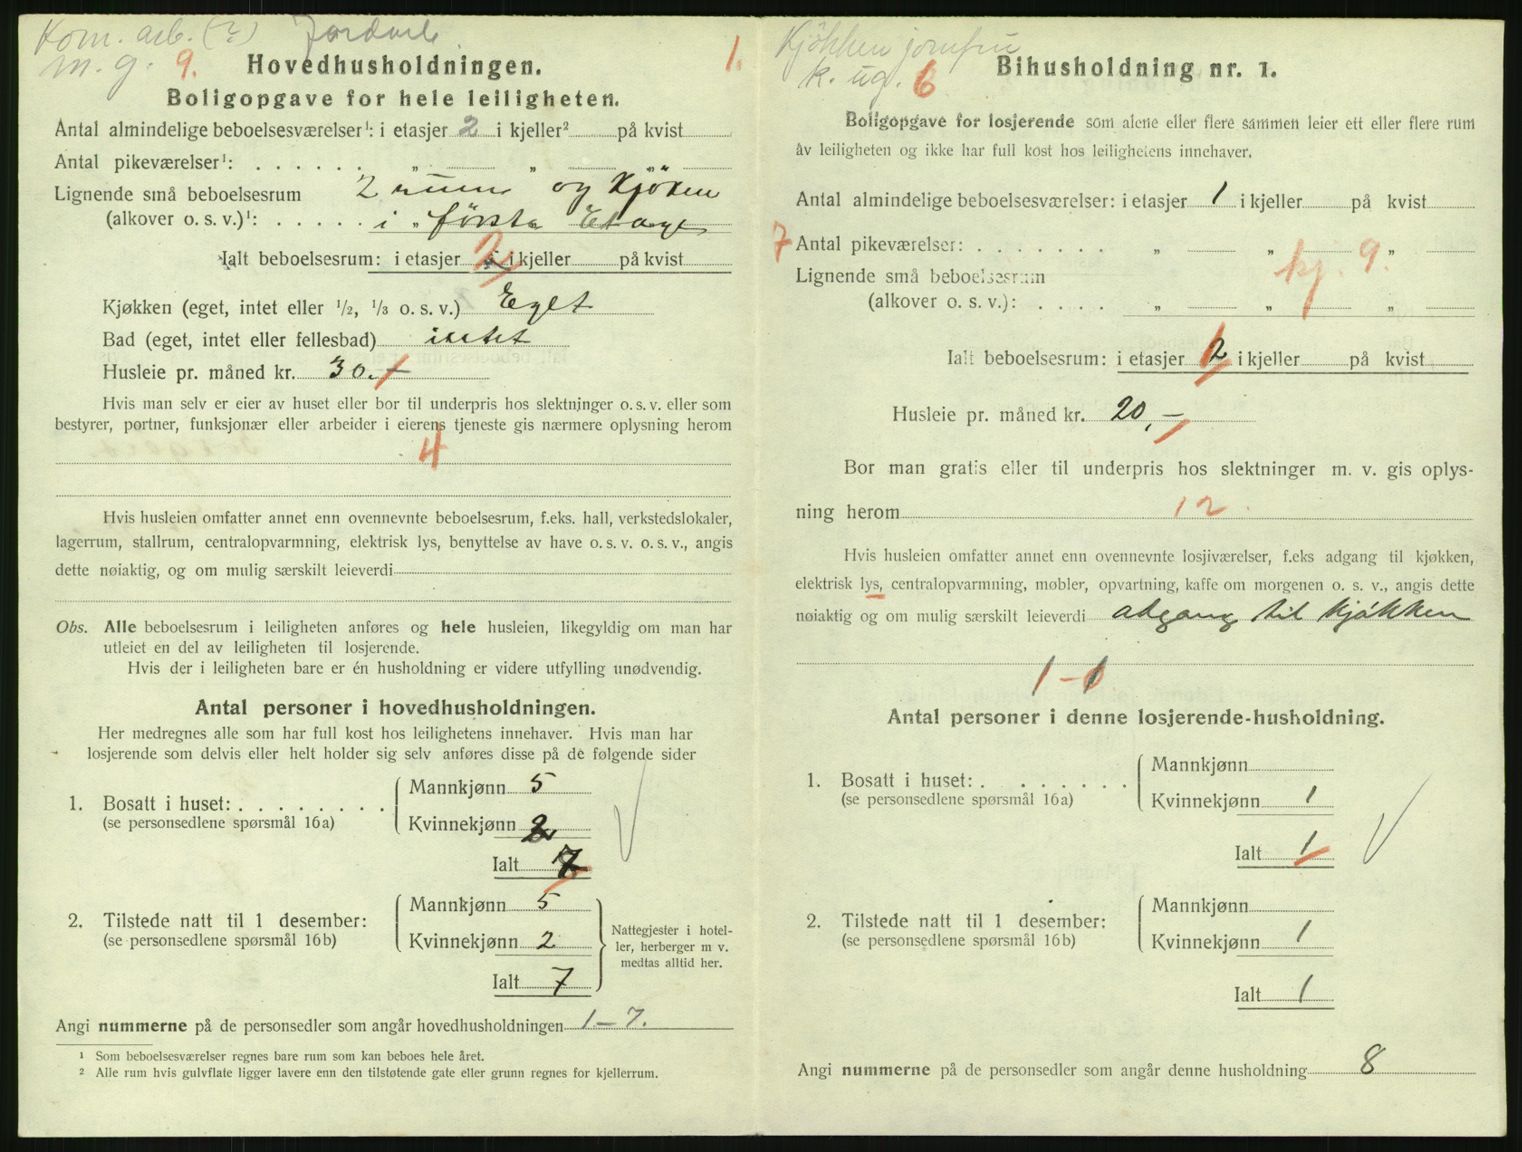 Kom. arb. (?) Jordarb
m. g. 9. 1.
Hovedhusholdningen.
Boligopgave for hele leiligheten.
Antal almindelige beboelsesværelser¹: i etasjer 2 i kjeller² på kvist
Antal pikeværelser¹: . . . . . . „ „ „
Lignende små beboelsesrum 2 rum og Kjøken
(alkover o. s. v.)¹: . . . . . i første Etage
Ialt beboelsesrum: i etasjer 2 i kjeller på kvist
Kjøkken (eget, intet eller ½, ⅓ o. s. v.) Eget
Bad (eget, intet eller fellesbad) intet
Husleie pr. måned kr. 30.-
Hvis man selv er eier av huset eller bor til underpris hos slektninger o. s. v. eller som
bestyrer, portner, funksjonær eller arbeider i eierens tjeneste gis nærmere oplysning herom
4
Hvis husleien omfatter annet enn ovennevnte beboelsesrum, f.eks. hall, verkstedslokaler,
lagerrum, stallrum, centralopvarmning, elektrisk lys, benyttelse av have o. s. v. o. s. v., angis
dette nøiaktig, og om mulig særskilt leieverdi
Obs. Alle beboelsesrum i leiligheten anføres og hele husleien, likegyldig om man har
utleiet en del av leiligheten til losjerende.
Hvis der i leiligheten bare er én husholdning er videre utfylling unødvendig.
Antal personer i hovedhusholdningen.
Her medregnes alle som har full kost hos leilighetens innehaver. Hvis man har
losjerende som delvis eller helt holder sig selv anføres disse på de følgende sider
1. Bosatt i huset: . . . . . . . .
(se personsedlene spørsmål 16a)
Mannkjønn 5
Kvinnekjønn 2
Ialt 7
2. Tilstede natt til 1 desember:
(se personsedlene spørsmål 16b)
Mannkjønn 5
Kvinnekjønn 2
Ialt 7
Nattegjester i hotel-
ler, herberger m v.
medtas alltid her.
Angi nummerne på de personsedler som angår hovedhusholdningen 1-7.
¹ Som beboelsesværelser regnes bare rum som kan beboes hele året.
² Alle rum hvis gulvflate ligger lavere enn den tilstøtende gate eller grunn regnes for kjellerrum.
Kjøkken jomfru
k. ug. 6
Bihusholdning nr. 1.
Boligopgave for losjerende som alene eller flere sammen leier ett eller flere rum
av leiligheten og ikke har full kost hos leilighetens innehaver.
Antal almindelige beboelsesværelser: i etasjer 1 i kjeller på kvist
7 Antal pikeværelser: . . . . . . . „ „ „
kj. 9.
Lignende små beboelsesrum
(alkover o. s. v.): . . . . „ „ „
Ialt beboelsesrum: i etasjer 2 i kjeller på kvist
Husleie pr. måned kr. 20,-
Bor man gratis eller til underpris hos slektninger m. v. gis oplys-
ning herom 12.
Hvis husleien omfatter annet enn ovennevnte losjiværelser, f.eks adgang til kjøkken,
elektrisk lys, centralopvarmning, møbler, opvartning, kaffe om morgenen o. s. v., angis dette
nøiaktig og om mulig særskilt leieverdi adgang til kjøkken
Antal personer i denne losjerende-husholdning.
1. Bosatt i huset: . . . . . . .
(se personsedlene spørsmål 16a)
Mannkjønn
Kvinnekjønn 1
Ialt 1
2. Tilstede natt til 1 desember:
(se personsedlene spørsmål 16b)
Mannkjønn
Kvinnekjønn 1
Ialt 1
Angi nummerne på de personsedler som angår denne husholdning 8